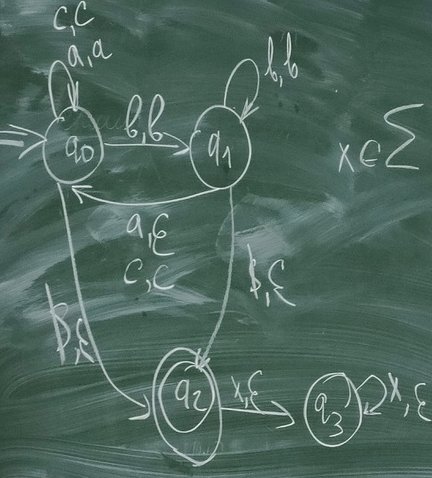 c,c
a,a
b,b
b,b
q0
q1
x∈Σ
a,ε
c,c
$,ε
$,ε
q2
x,ε
q3
x,ε